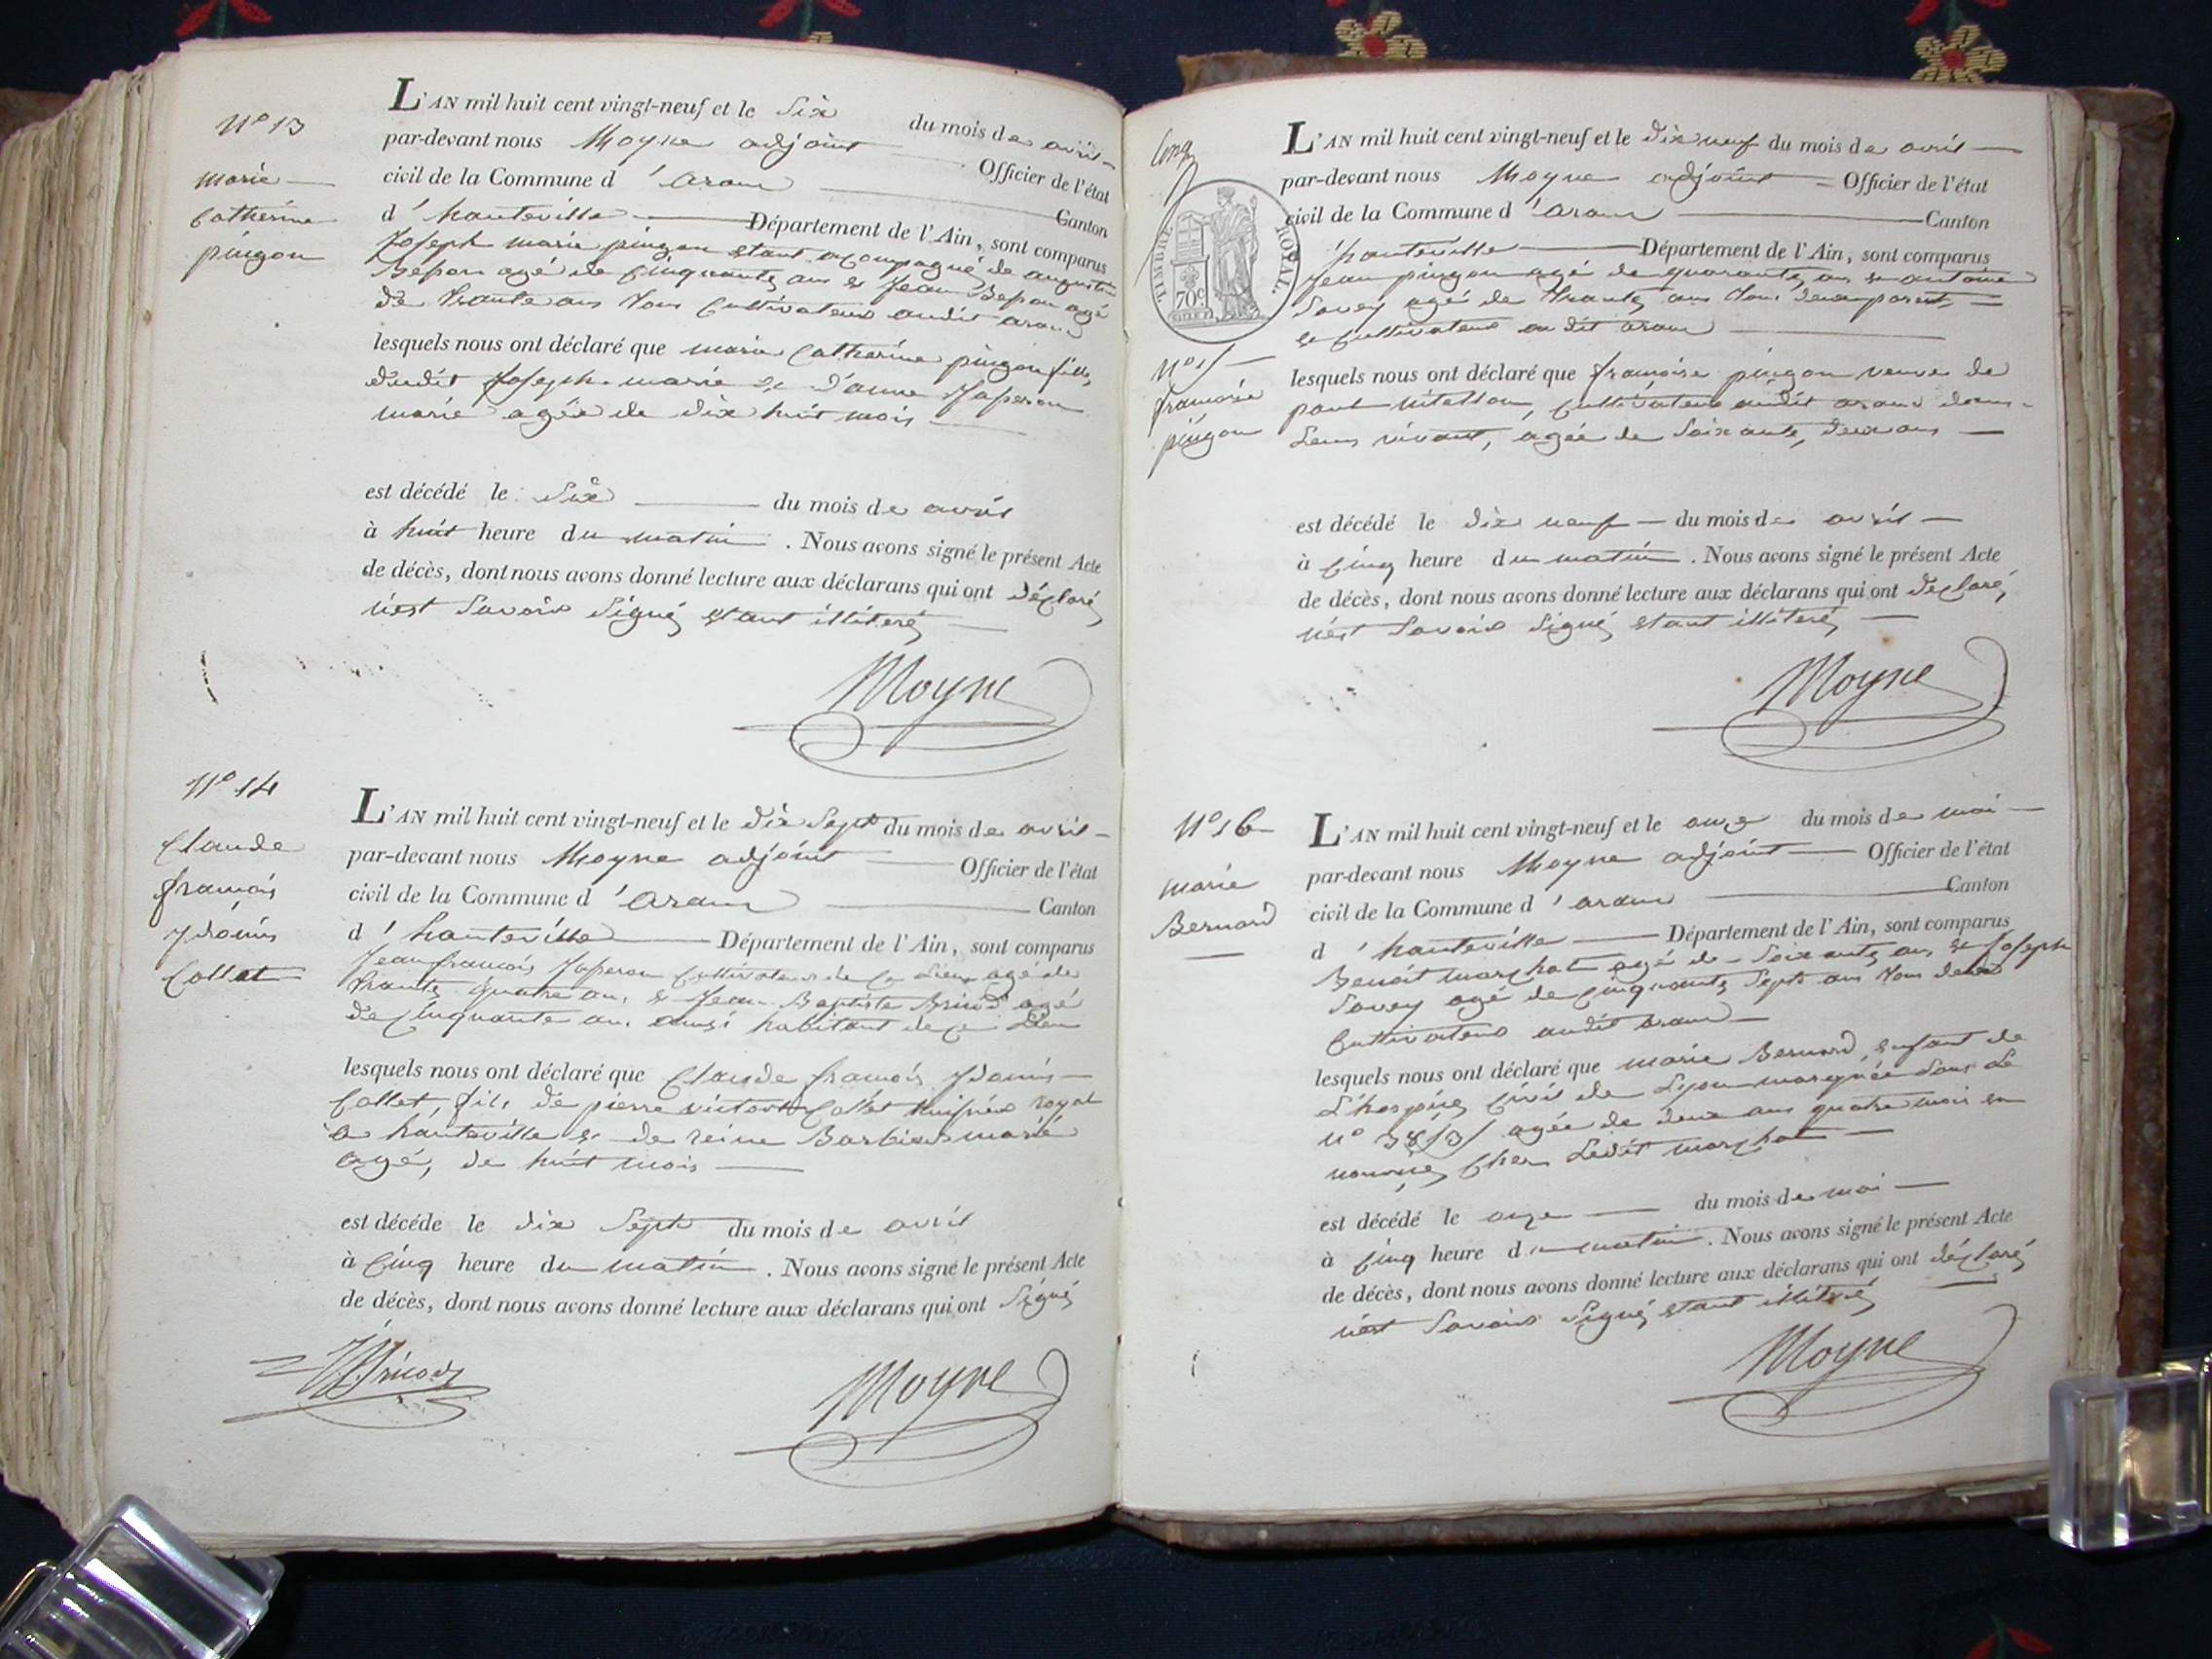 N° 13
marie
Catherine
pingon
L'AN mil huit cent vingt-neuf et le six du mois de avril
par-devant nous Moyne adjoint Officier de l'état
civil de la Commune d' aranc Canton
d' hauteville Département de l'Ain, sont comparus
Joseph marie pingon etant acompagné de augustin
agé de cinquante ans et Jean agé
de trante ans tous cultivateurs audit aranc
lesquels nous ont déclaré que marie Catherine pingon fille
dudit Joseph marie et d'anne
marié agée de dix huit mois
est décédé le six du mois de avril
à huit heure du matin. Nous avons signé le présent Acte
de décès, dont nous avons donné lecture aux déclarans qui ont déclaré
n'est savoir signé etant illiteré
Moyne
N° 14
Claude
francois
Collet
L'AN mil huit cent vingt-neuf et le dix sept du mois de avril
par-devant nous Moyne adjoint Officier de l'état
civil de la Commune d' aranc Canton
d' hauteville Département de l'Ain, sont comparus
Jean francois cultivateur de ce lieu agé de
trante quatre ans et Jean Baptiste agé
de cinquante ans aussi habitant de ce lieu
lesquels nous ont déclaré que Claude francois
Collet, fils de pierre victort Collet huissier royal
a hauteville et de reine Barbier marié
agé, de huit mois
est décédé le dix sept du mois de avril
à cinq heure du matin. Nous avons signé le présent Acte
de décès, dont nous avons donné lecture aux déclarans qui ont signé
Moyne
Cinq
TIMBRE ROYAL.
70c
N° 15
francoise
pingon
L'AN mil huit cent vingt-neuf et le dix neuf du mois de avril
par-devant nous Moyne adjoint Officier de l'état
civil de la Commune d' aranc Canton
d' hauteville Département de l'Ain, sont comparus
Jean pingon agé de quarante ans et antoine
Savey agé de trante ans tous deux parent
et cultivateurs au dit aranc
lesquels nous ont déclaré que francoise pingon veuve de
cultivateur audit aranc
vivant, agée de soixante deux ans
est décédé le dix neuf du mois de avril
à cinq heure du matin. Nous avons signé le présent Acte
de décès, dont nous avons donné lecture aux déclarans qui ont declaré,
n'est savoir signé etant illiteré
Moyne
N° 16
marie
Bernard
L'AN mil huit cent vingt-neuf et le onze du mois de mai
par-devant nous Moyne adjoint Officier de l'état
civil de la Commune d' aranc Canton
d' hauteville Département de l'Ain, sont comparus
Benoit agé de soixante ans et Joseph
Savey agé de cinquante sept ans tous deux
cultivateurs audit aranc
lesquels nous ont déclaré que marie Bernard enfant de
L'hospice civil de Lyon marquée sous Le
N° agée de deux ans quatre mois en
chez Ledit
est décédé le onze du mois de mai
à cinq heure du matin. Nous avons signé le présent Acte
de décès, dont nous avons donné lecture aux déclarans qui ont déclaré
n'est savoir signé etant illiteré
Moyne